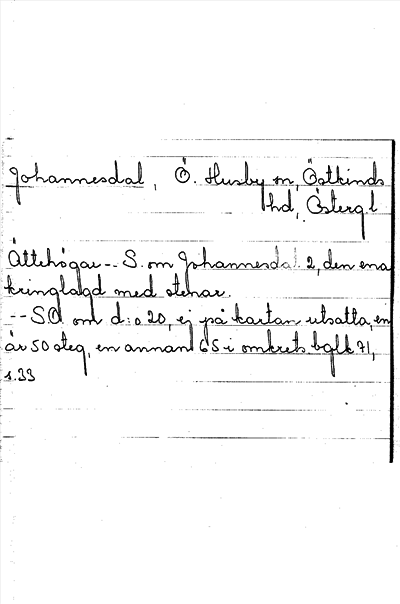 Johannesdal, Ö. Husby sn, Östkinds
hd, Östergl
Ättehögar -- S. om Johannesdal 2, den ena
kringlagd med stenar.
-- SO om d:o 20, ej på kartan utsatta, en
är 50 steg, en annan 65 i omkrets. bglk 71,
s. 33